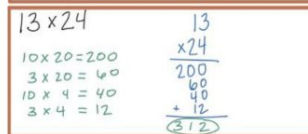 13 × 24
10 × 20 = 200
3 × 20 = 60
10 × 4 = 40
3 × 4 = 12
13
×24
200
60
40
+ 12
312